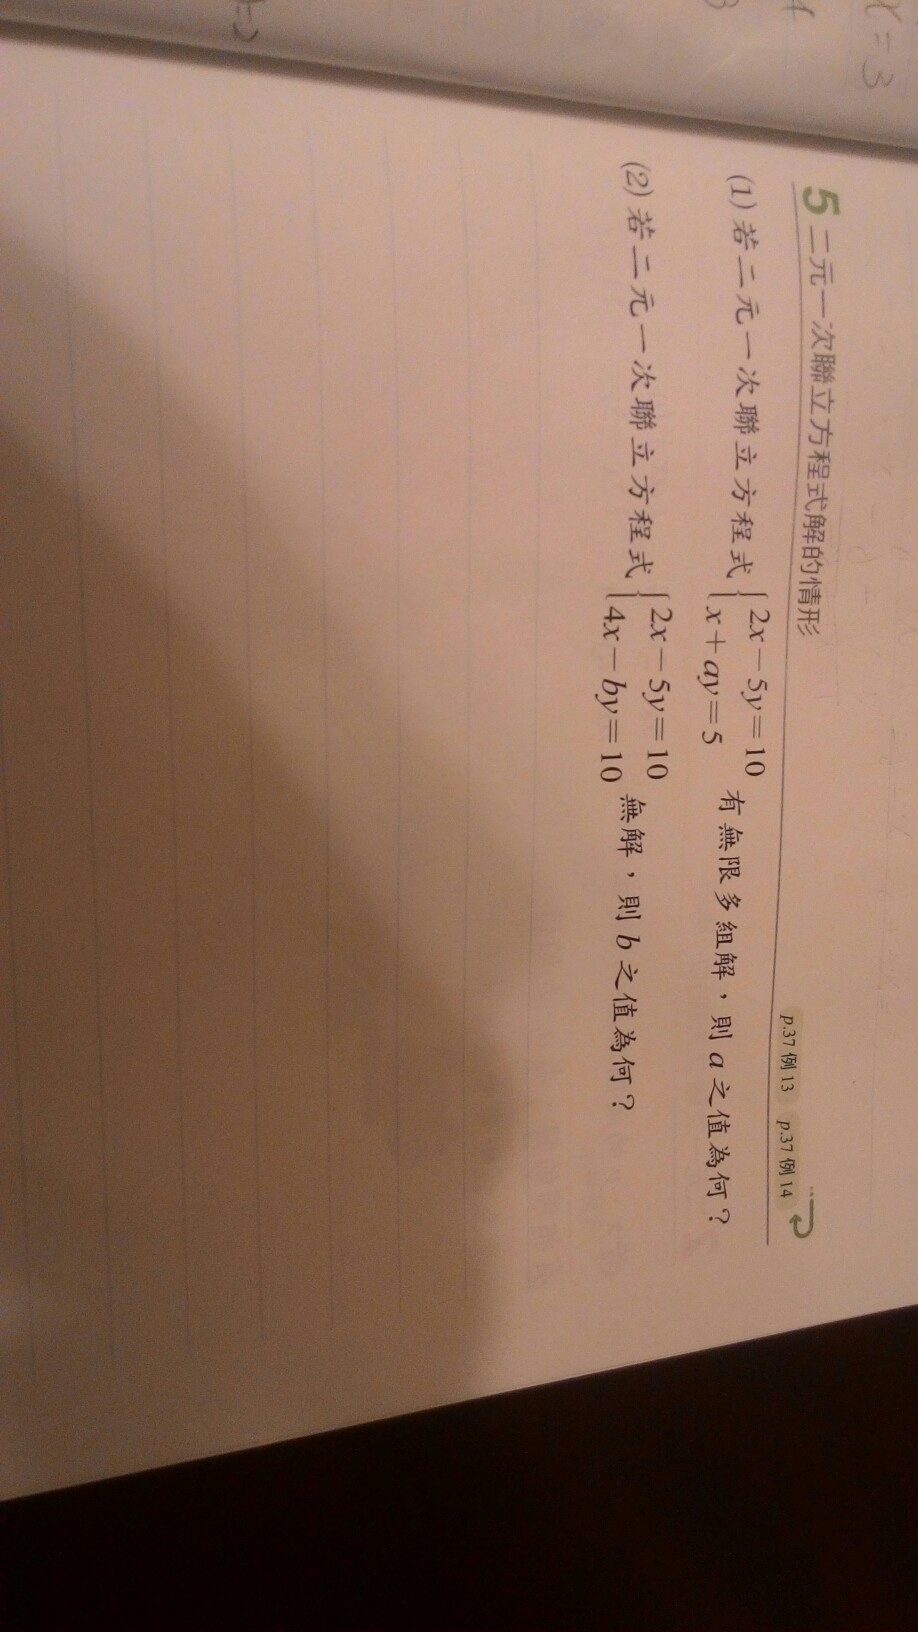 x=3
5 二元一次聯立方程式解的情形
p.37 例 13 p.37 例 14
(1) 若二元一次聯立方程式 { 2x－5y＝10
x＋ay＝5 有無限多組解，則 a 之值為何？
(2) 若二元一次聯立方程式 { 2x－5y＝10
4x－by＝10 無解，則 b 之值為何？